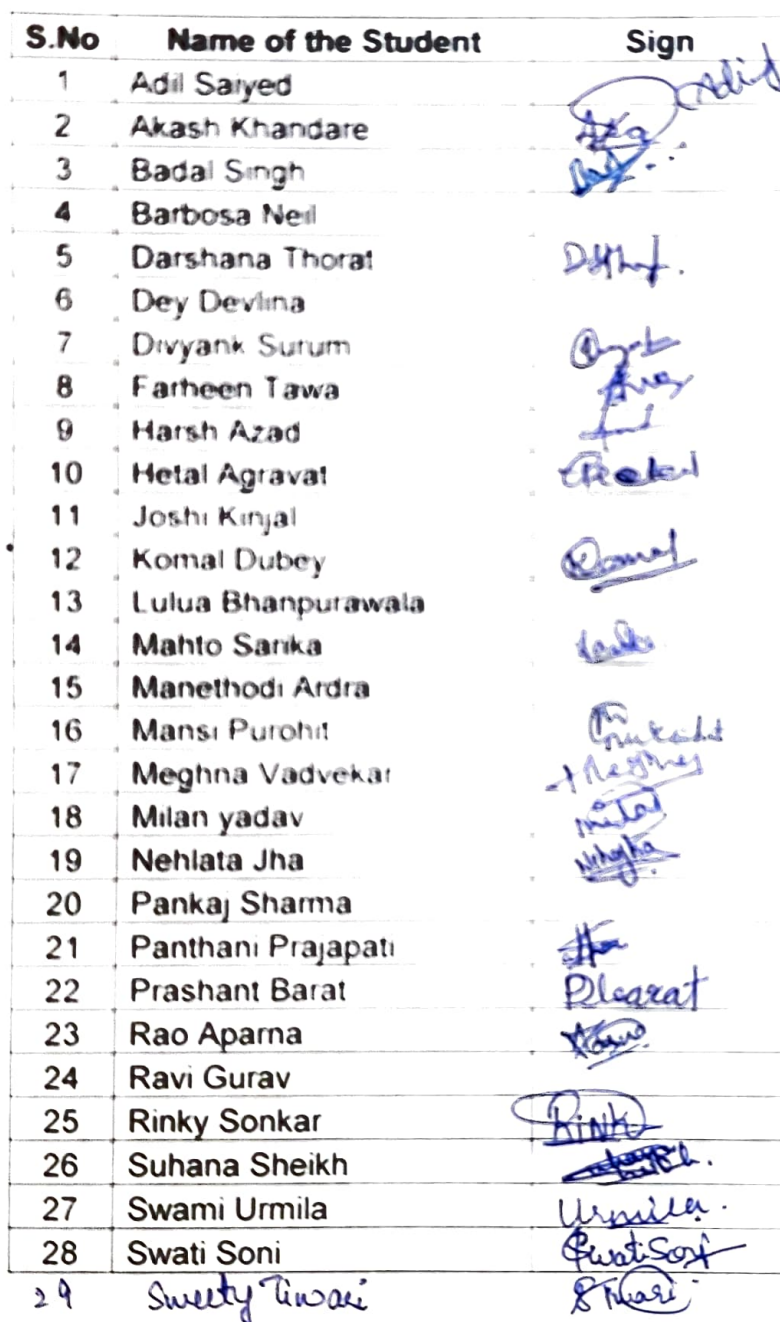 S.No Name of the Student Sign
1 Adil Saiyed Adil
2 Akash Khandare
3 Badal Singh
4 Barbosa Neil
5 Darshana Thorat
6 Dey Devlina
7 Divyank Surum
8 Farheen Tawa
9 Harsh Azad
10 Hetal Agravat
11 Joshi Kinjal
12 Komal Dubey Komal
13 Lulua Bhanpurawala
14 Mahto Sarika
15 Manethodi Ardra
16 Mansi Purohit
17 Meghna Vadvekar
18 Milan yadav
19 Nehlata Jha
20 Pankaj Sharma
21 Panthani Prajapati
22 Prashant Barat PBarat
23 Rao Aparna
24 Ravi Gurav
25 Rinky Sonkar
26 Suhana Sheikh
27 Swami Urmila Urmila.
28 Swati Soni Swati Soni
29 Sweety Tiwari STiwari